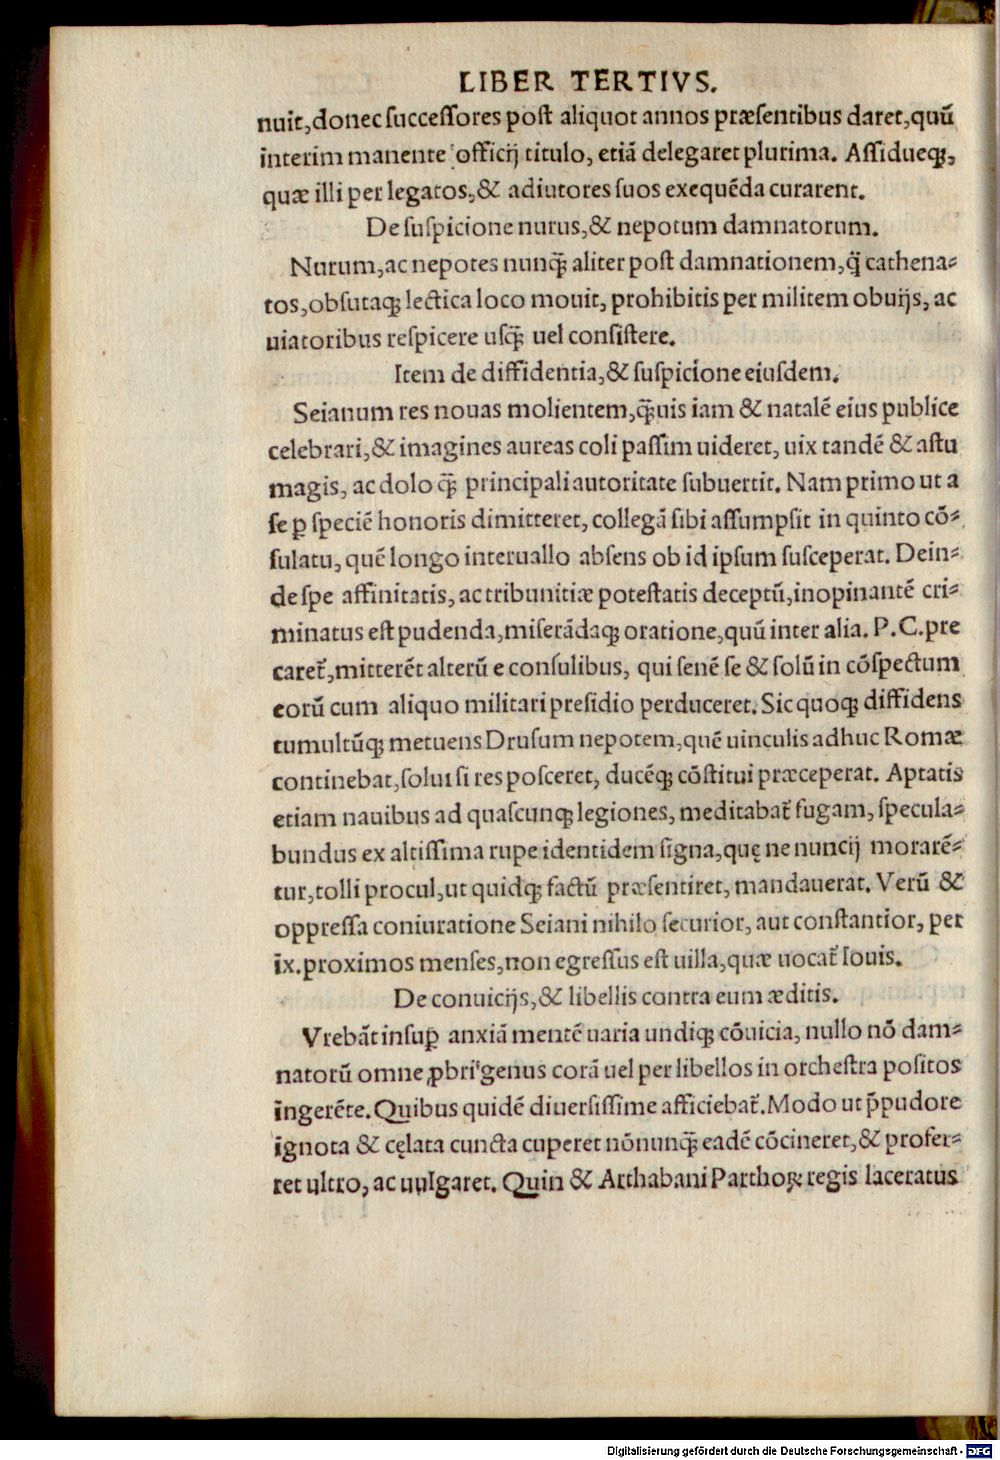 LIBER TERTIVS.
nuit,donec ſucceſſores poſt aliquot annos præſentibus daret,quũ
interim manente officij titulo, etiã delegaret plurima. Aſſidueq́;,
quæ illi per legatos,& adiutores ſuos exequẽda curarent.
De ſuſpicione nurus,& nepotum damnatorum.
Nurum,ac nepotes nunq̃ aliter poſt damnationem,q̃ cathena-
tos,obſutaq́; lectica loco mouit, prohibitis per militem obuijs, ac
uiatoribus reſpicere uſq̃ uel conſiſtere.
Item de diffidentia,& ſuſpicione eiuſdem.
Seianum res nouas molientem,q̃uis iam & natalẽ eius publice
celebrari,& imagines aureas coli paſſim uideret, uix tandẽ & aſtu
magis, ac dolo q̃ principali autoritate ſubuertit. Nam primo ut a
ſe ꝑ ſpeciẽ honoris dimitteret, collegã ſibi aſſumpſit in quinto cõ-
ſulatu, quẽ longo interuallo abſens ob id ipſum ſuſceperat. Dein-
de ſpe affinitatis, ac tribunitiæ poteſtatis deceptũ,inopinantẽ cri-
minatus eſt pudenda,miſerãdaq́; oratione,quũ inter alia. P.C.pre
caret᷑,mitterẽt alterũ e conſulibus, qui ſenẽ ſe & ſolũ in cõſpectum
eorũ cum aliquo militari preſidio perduceret. Sic quoq́; diffidens
tumultũq́; metuens Druſum nepotem,quẽ uinculis adhuc Romæ
continebat,ſolui ſi res poſceret, ducẽq́; cõſtitui præceperat. Aptatis
etiam nauibus ad quaſcunq́; legiones, meditabat᷑ fugam, ſpecula-
bundus ex altiſſima rupe identidem ſigna,quę ne nuncij morarẽ-
tur,tolli procul,ut quidq́; factũ præſentiret, mandauerat. Verũ &
oppreſſa coniuratione Seiani nihilo ſecurior, aut conſtantior, per
ix.proximos menſes,non egreſſus eſt uilla,quæ uocat᷑ Iouis.
De conuicijs,& libellis contra eum æditis.
Vrebãt inſuꝑ anxiã mentẽ uaria undiq́; cõuicia, nullo nõ dam-
natorũ omne ꝓbri genus corã uel per libellos in orcheſtra poſitos
ingerẽte. Quibus quidẽ diuerſiſſime afficiebat᷑. Modo ut p̃pudore
ignota & cęlata cuncta cuperet nõnunq̃ eadẽ cõcineret,& profer-
ret ultro, ac uulgaret. Quin & Arthabani Parthoꝝ regis laceratus
Digitalisierung gefördert durch die Deutsche Forschungsgemeinschaft - DFG